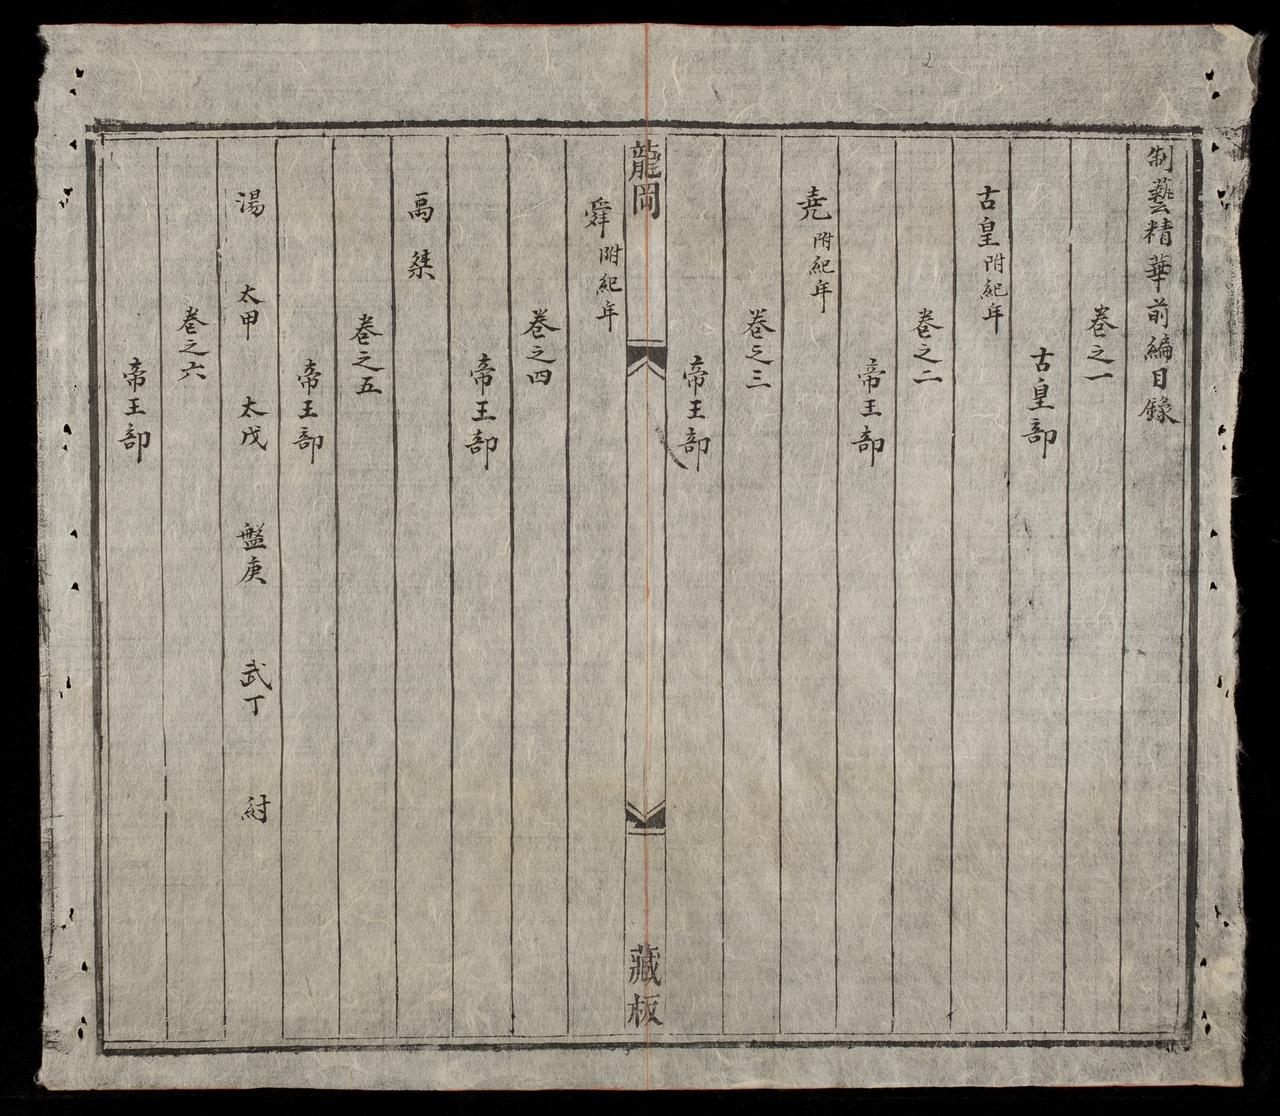 制藝精華前編目錄
卷之一
古皇部
古皇附紀年
卷之二
帝王部
堯附紀年
卷之三
帝王部
龍岡
藏板
舜附紀年
卷之四
帝王部
禹 桀
卷之五
帝王部
湯 太甲 太戊 盤庚 武丁 紂
卷之六
帝王部